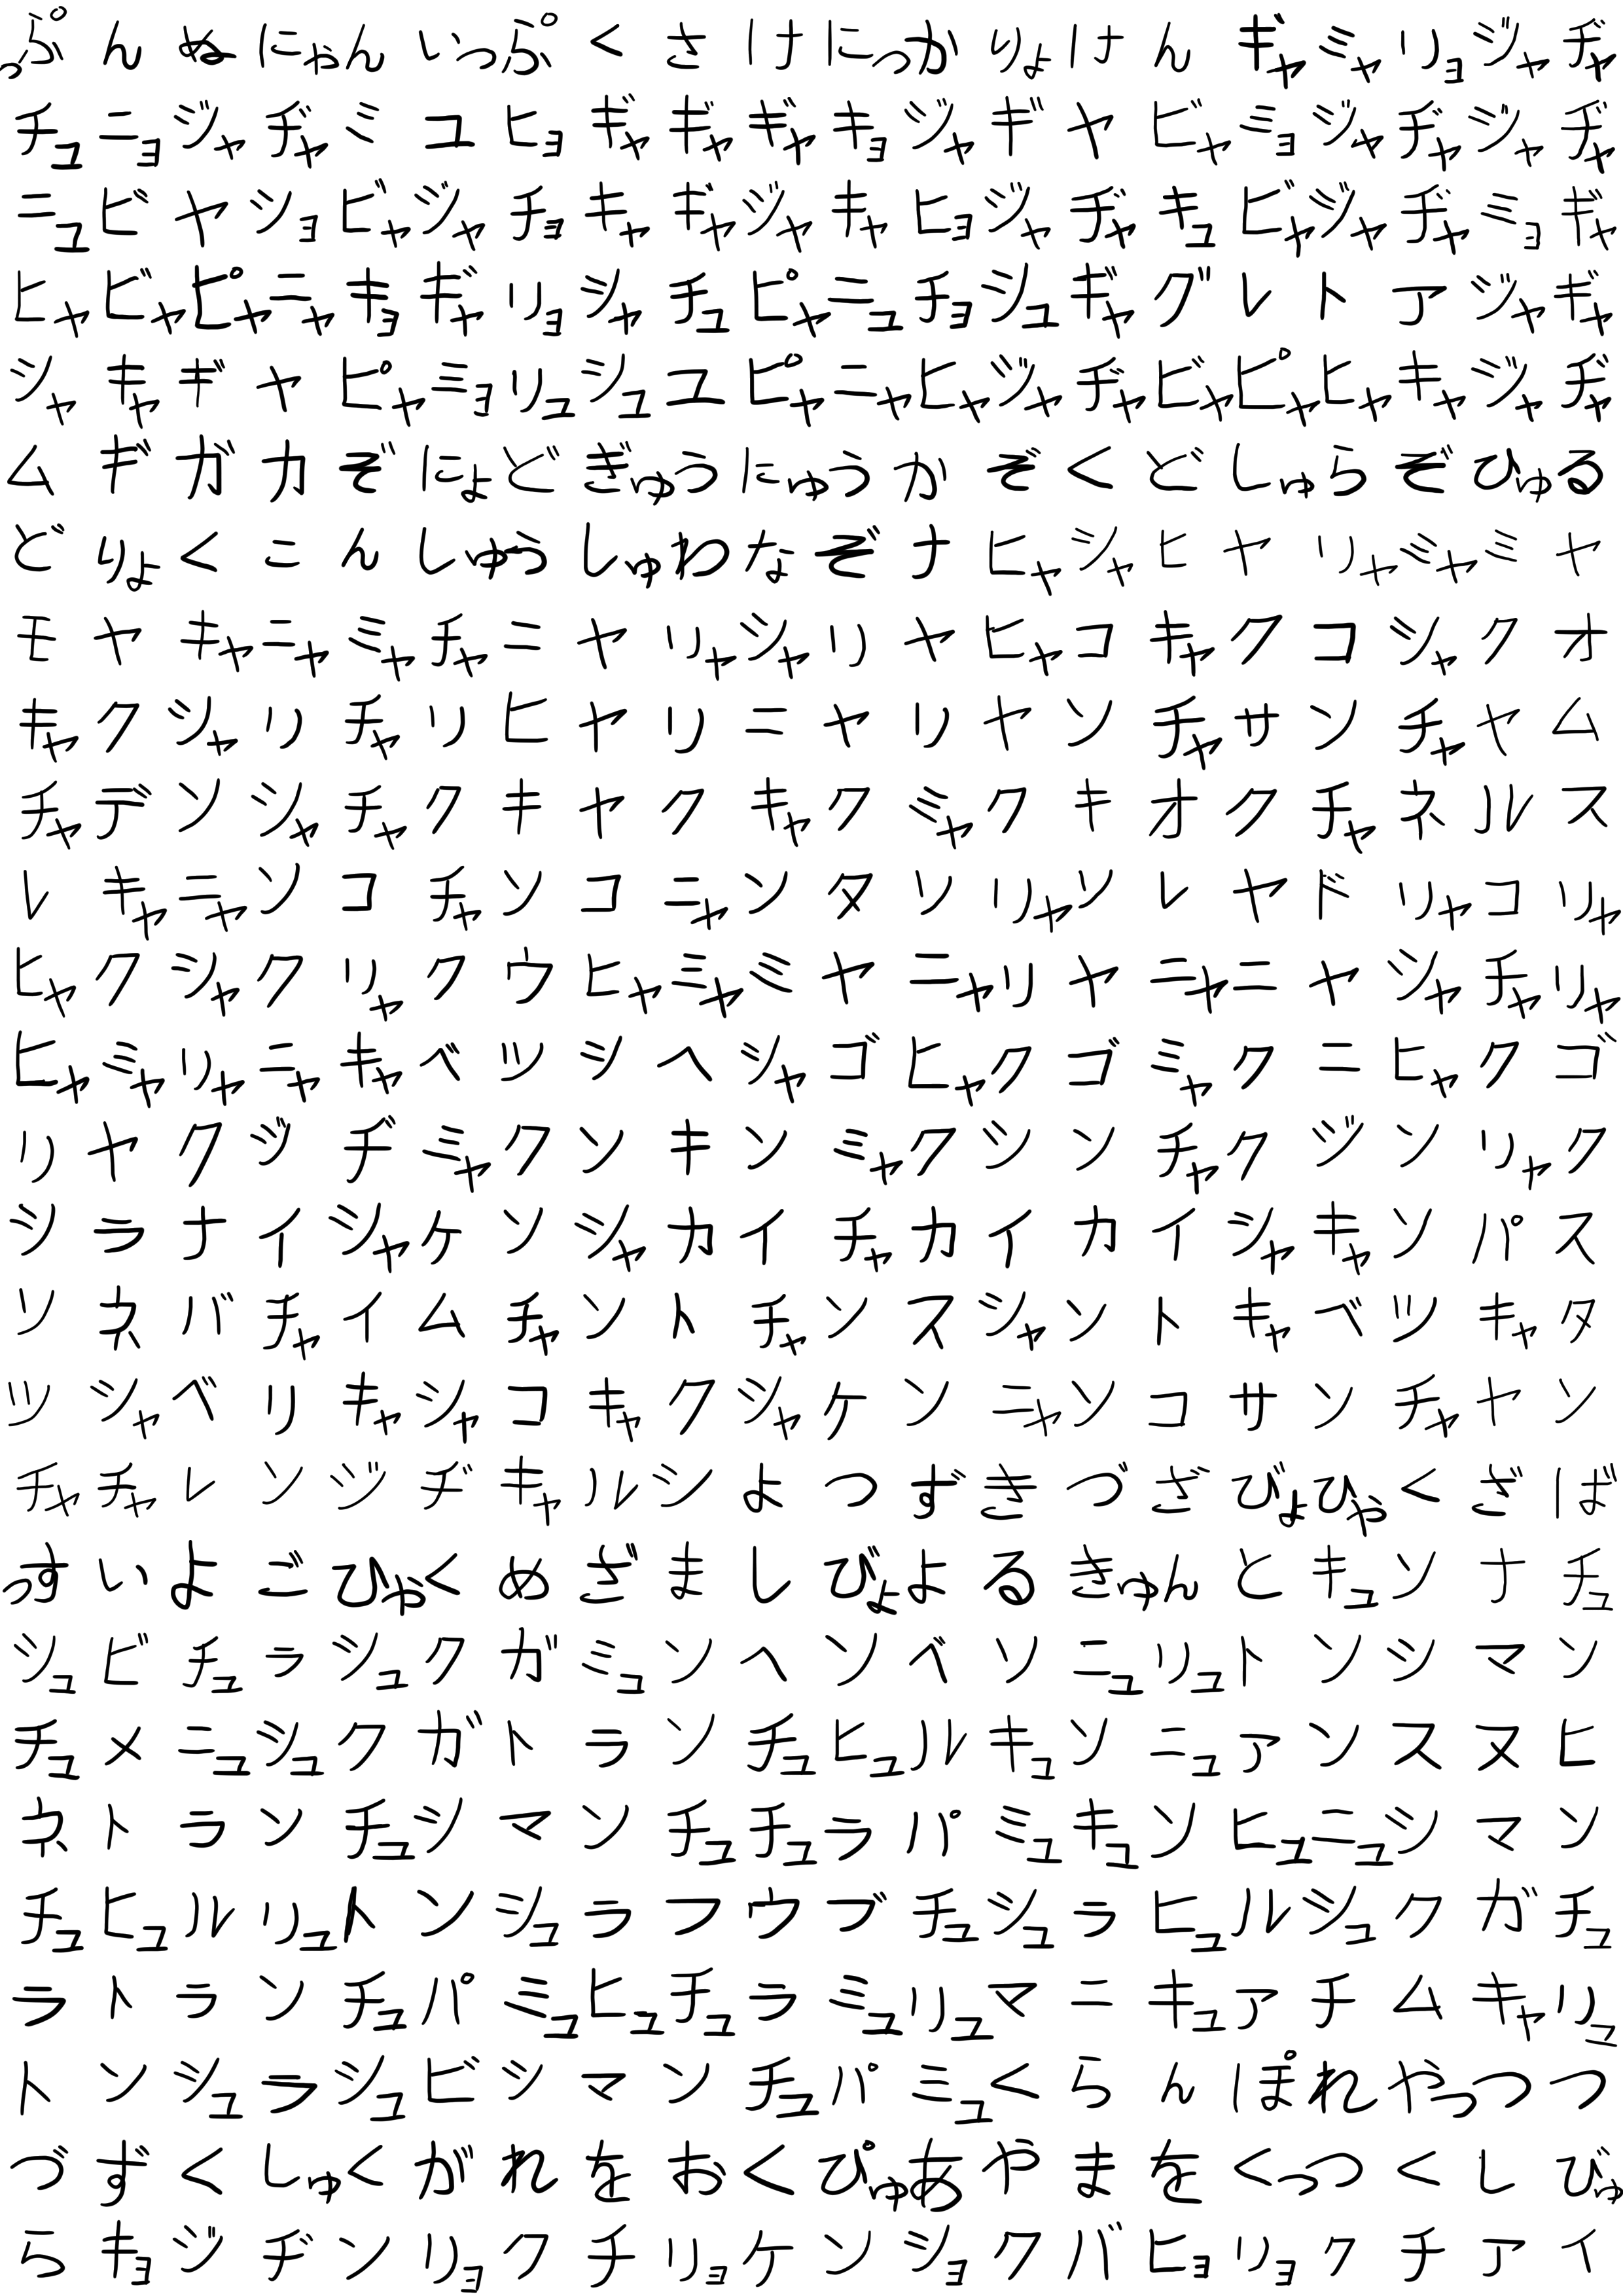 っぷんぬにゃんいっぷくさけにっかりょけんギャミャリョジャヂャ
チュニョジャヂャミユヒョギャギャギャキョジャギヤビャミョジャヂャジャヂャ
ニュビヤショビャジャチョキャギャジャキャヒョジャヂャキュビャジャヂャミョギャ
ヒャビャピャニャキョギャリョシャチュピャニュチョシュギャグレトアジャギャ
シャキャギヤピャミョリュシュユピャニャヒャジャヂャビャピャヒャキャジャヂャ
ムギガカぞにょどぎゅうにゅうかぞくどしゅらぞひゅる
どりょくこんしゅうしゅわなぞナヒャシャヒヤリャミャミヤ
モヤキャニャミャチャミヤリャシャリヤヒャコキャクコシャクオ
キャクシャリチャリヒヤリニヤリヤンチャサンチャヤム
チャデンシャチャクキヤクキャクミャクキオクチャネルス
レキャニャンコチャンコニャンタンリャンレヤドリャコリャ
ヒャクシャクリャクウヒャミャミヤニャリヤニャニヤシャチャリャ
ヒャミャリャニャキャベツシヘシャゴヒャクゴミャクニヒャクゴ
リヤクジヂミャクンキンミャクシンチャクジンリャク
シラナイシャケンシャカイチャカイカイシャキャンパス
ソネバチャイムチャントチャンスシャントキャベツキャタ
ツシャベリキャシャコキャクシャケンニャンコサンチャヤン
チャチャレンジヂキャルシよつずきづざびょひゃくざば
っすいよごひゃくめざましびょよるきゅんとキュンナチュ
シュビチュラシュクガミュンヘンベンニュリュトンシマン
チュメニュシュクガトランチュヒュルキュンニュアンスヌヒ
ネトランチュシマンチュチュラパミュキュンヒュニュシマン
チュヒュルリュトンシュラフウブチュシュラヒュルシュクガチュ
ラトランチュパミュヒュチュラミュリュマニキュアチムキャリュ
トンシュラシュビシマンチュパミュくらんぽれやっつつ
づずくしゅくがれをおくぴゅあやまをくっつくしびゅ
らキョジヂンリョクチリョケンショクバヒョリョクチアイ